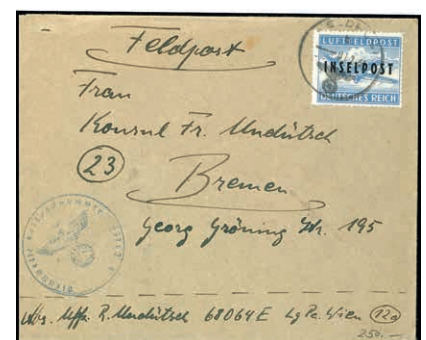 Feldpost
LUFTFELDPOST
INSELPOST
DEUTSCHES REICH
Frau
Konsul Fr. Undütsch
(23)
Bremen
Georg Gröning Str. 195
Abs. Uffz. R. Undütsch 68064E Lg Pa. Wien (12a)
250.—